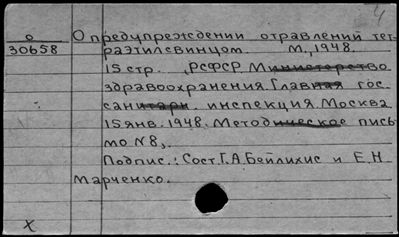 4
о О предупреждении отравлений тет-
30658 раэтилсвинцом. М., 1948.
15 стр. , РСФСР. Министерство
здравоохранения. Главная гос.
санитарн. инспекция. Москва
15 янв. 1948. Методическое пись-
мо N8,.
Подпис.: Сост. Г.А. Бейлихис и Е.Н.
Марченко.
X